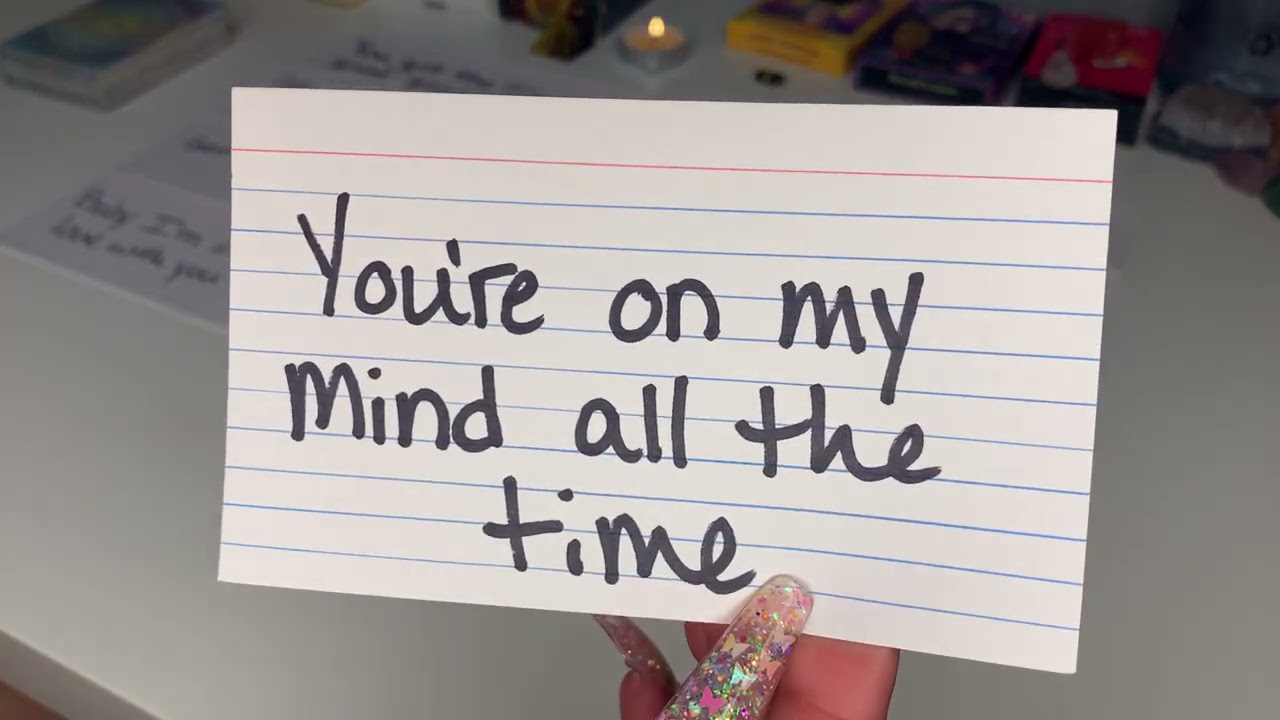 You're on my
mind all the
time
Baby I'm
love with you